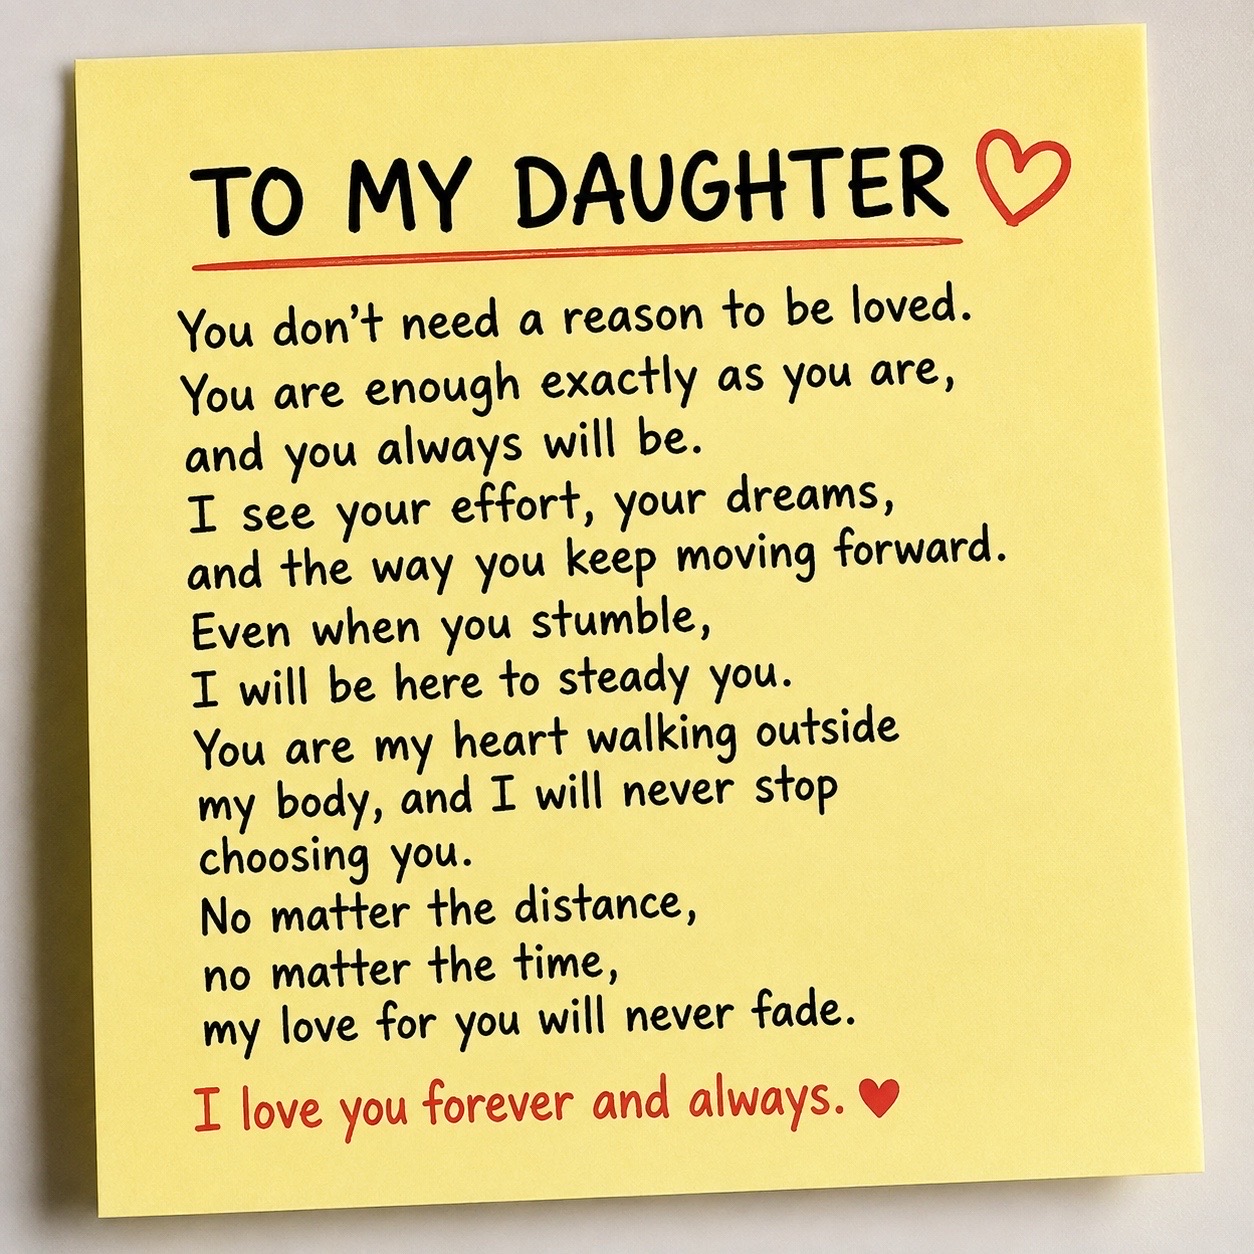 TO MY DAUGHTER
You don't need a reason to be loved.
You are enough exactly as you are,
and you always will be.
I see your effort, your dreams,
and the way you keep moving forward.
Even when you stumble,
I will be here to steady you.
You are my heart walking outside
my body, and I will never stop
choosing you.
No matter the distance,
no matter the time,
my love for you will never fade.
I love you forever and always.